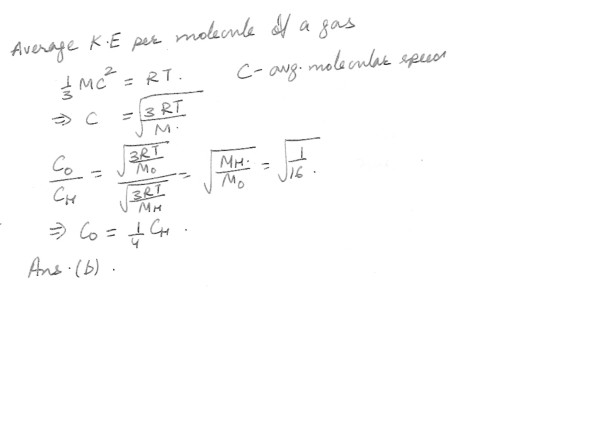 Average K.E per molecule of a gas
1/3 MC² = RT. C - avg. molecular speed
⇒ C = √(3RT/M).
C_O/C_H = √(3RT/M_O) / √(3RT/M_H) = √(M_H/M_O) = √(1/16).
⇒ C_O = 1/4 C_H.
Ans. (b).